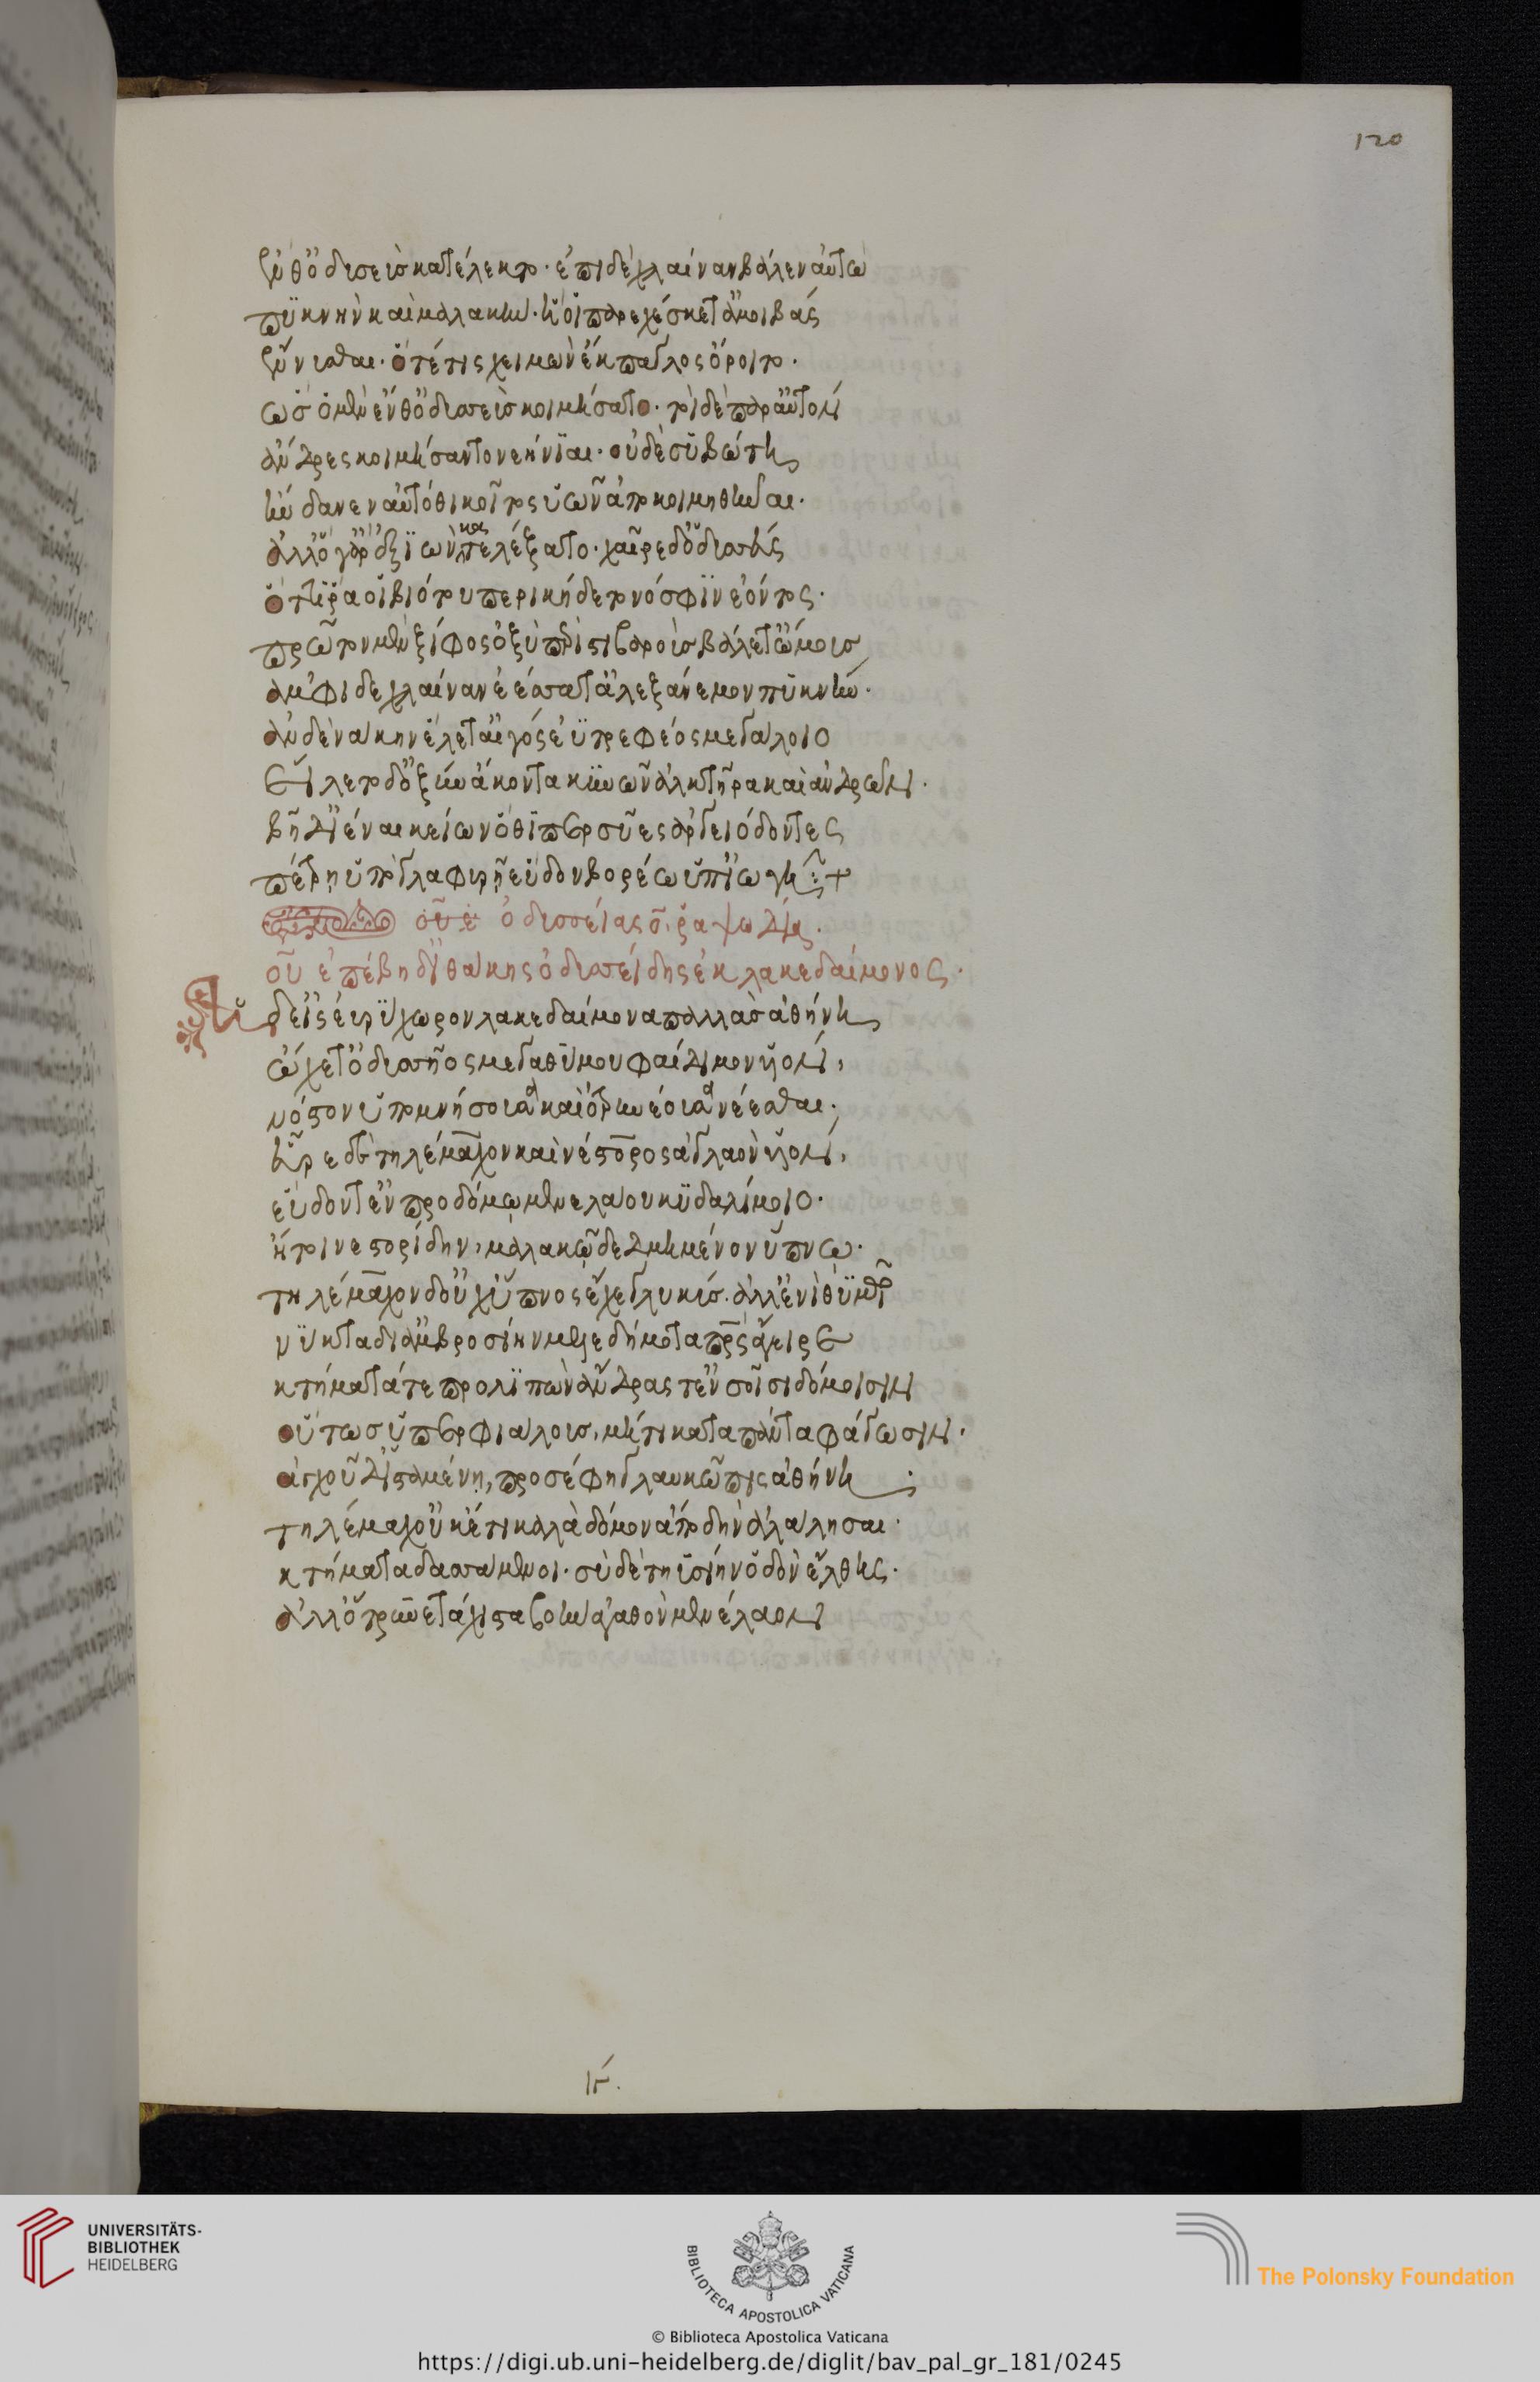 ἔνθ' ὀδυσεὺς κατέλεκτο· ἐπὶ δὲ χλαίναν βάλεν αὐτῶ
πυκνὴν καὶ μαλακὴν· ἥ οἱ παρεχέσκετ' ἀμοιβάς
ἕννυσθαι· ὅτέ τις χειμὼν ἔκπαγλος ὄροιτο·
ὣς ὁ μὲν ἔνθ' ὀδυσσεὺς κοιμήσατο· τοὶ δὲ παρ' αὐτὸν
ἄνδρες κοιμήσαντο νεήνιαι· οὐδὲ συβώτη
ἥνδανεν αὐτόθι κοῖτος ὑῶν ἄπο κοιμηθῆναι·
ἀλλ' ὅγ' ἄρ' ἐξιὼν κατελέξατο· χαῖρε δ' ὀδυσσεύς
ὅττι ῥα οἱ βιότου περικήδετο νόσφιν ἐόντος·
πρῶτον μὲν ξίφος ὀξὺ περὶ στιβαροῖς βάλετ' ὤμοις
ἀμφὶ δε χλαίναν ἑέσσατ' ἀλεξάνεμον πυκνήν·
ἂν δὲ νάκην ἕλετ' αἰγός ἐϋτρεφέος μεγάλοιο
εἵλετο δ' ὀξὺν ἄκοντα κυνῶν ἀλκτῆρα καὶ ἀνδρῶν·
βῆ δ' ἰέναι κείων ὅθί περ σῦες ἀργειόδοντες
πέτρη ὕπο γλαφυρῆ εὗδον βορέω ὑπ' ἰωγῆ:+
οὖ ὀδυσσείας ο ῥαψωδίας·
οὖ ἐπέβη δ' ἰθάκης ὀδυσσείδης ἐκ λακεδαίμονος·
Ἡ δ' εἰς εὐρύχωρον λακεδαίμονα παλλὰς ἀθήνη
ὤχετ' ὀδυσσῆος μεγαθύμου φαίδιμον υἱὸν,
νόστον ὑπομνήσουσα καὶ ὀτρυνέουσα νέεσθαι·
εὗρε δὲ τηλέμαχον καὶ νέστορος ἀγλαὸν υἱὸν,
εὕδοντ' ἐν προδόμω μενελάου κυδαλίμοιο·
ἤτοι νεστορίδην, μαλακῶ δεδμημένον ὕπνω·
τηλέμαχον δ' οὐχ' ὕπνος ἔχε γλυκύς. ἀλλ' ἐνὶ θυμῶ
νύκτα δι' ἀμβροσίην μελεδήματα πατρὸς ἔγειρε
κτήματά τε προλιπὼν ἄνδρας τ' ἐν σοῖσι δόμοισιν
οὕτως ὑπερφιάλους, μή τι κατα πάντα φάγωσιν·
ἀγχοῦ δ' ἱσταμένη, προσέφη γλαυκῶπις ἀθήνη·
τηλέμαχ' οὐκέτι καλὰ δόμον ἄπο δὴν ἀλάλησαι·
κτήματα δασσάμενοι· σὺ δὲ τηϋσίην ὁδὸν ἔλθης·
ἀλλ' ὄτρυνε τάχιστα βοὴν ἀγαθὸν μενέλαον
120
ιε.
UNIVERSITÄTS-
BIBLIOTHEK
HEIDELBERG
BIBLIOTECA APOSTOLICA VATICANA
The Polonsky Foundation
© Biblioteca Apostolica Vaticana
https://digi.ub.uni-heidelberg.de/diglit/bav_pal_gr_181/0245